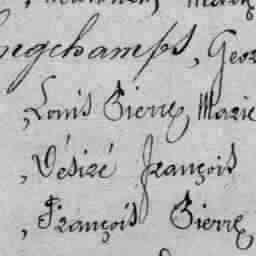 Longchamps, Geor
, Louis Pierre Marie
, Désiré François
, François Pierre